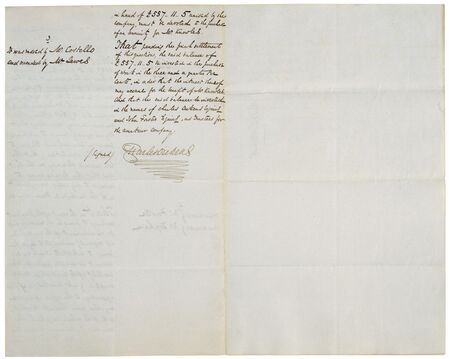 2
It was moved by Mr Costello
and seconded by Mr
in hand of £557.11.5 raised by the
company, must be devoted to the purchase
of an annuity for Mr Knowles.
That pending the final settlement
of this question, the said balance of
£557.11.5 be invested in the purchase
of stock in the three and a quarter per
cents, in order that the interest thereof
may accrue for the benefit of Mr Knowles
And that the said balance be invested
in the names of Charles Dickens Esquire
and John Forster Esquire, as Trustees for
the amateur company.
(signed) Charles Dickens